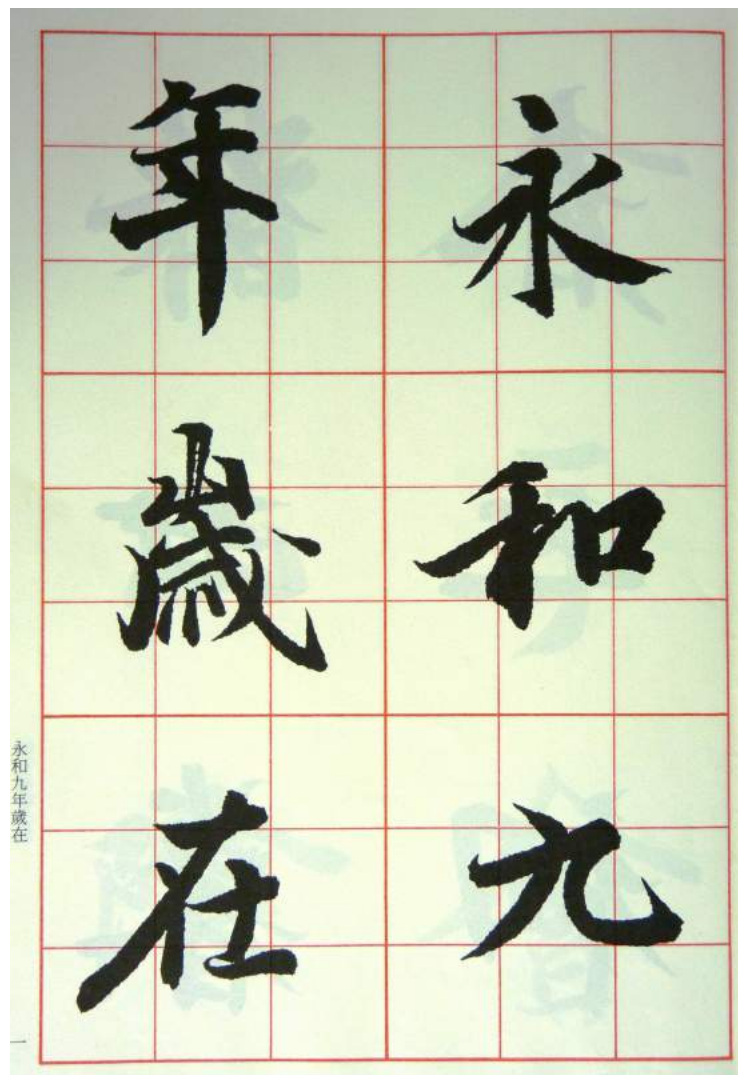 永和九
年歲在
永和九年歲在
一